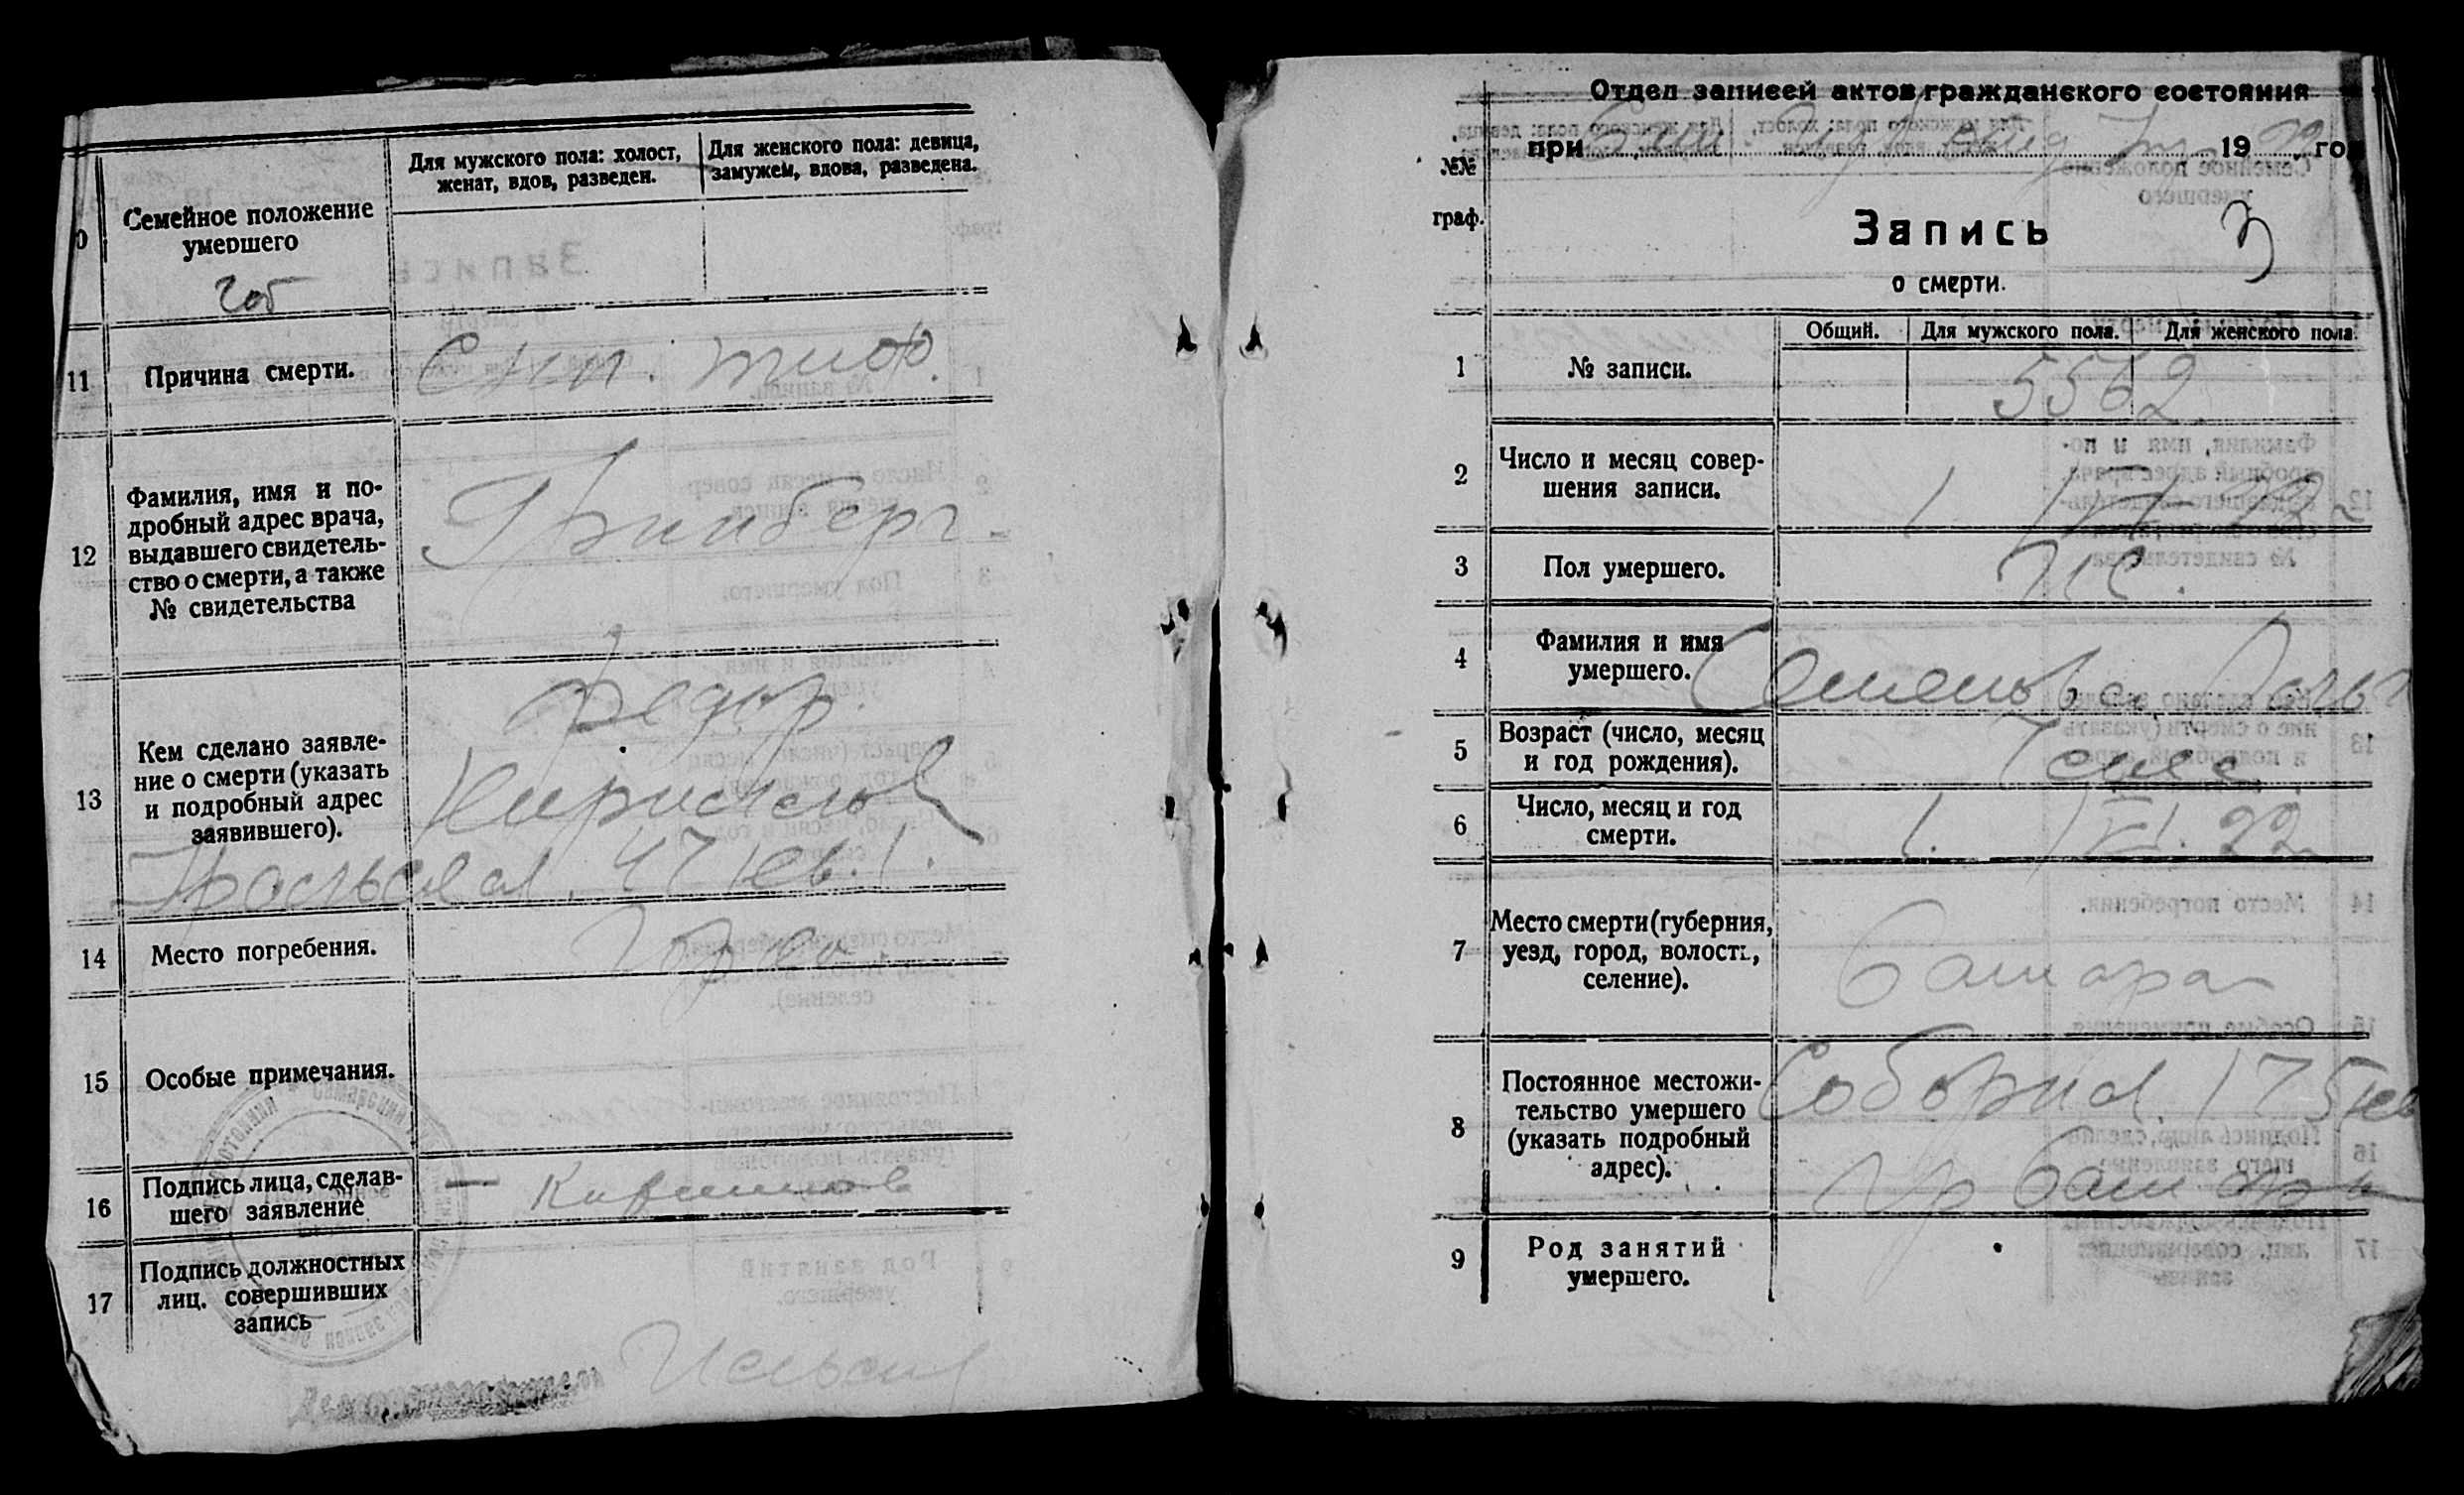 Семейное положение
умершего
Для мужского пола: холост,
женат, вдов, разведен.
Для женского пола: девица,
замужем, вдова, разведена.
11
Причина смерти.
Сып. тиф.
12
Фамилия, имя и по-
дробный адрес врача,
выдавшего свидетель-
ство о смерти, а также
№ свидетельства
Гринберг
13
Кем сделано заявле-
ние о смерти (указать
и подробный адрес
заявившего).
Федор
Кириллов
Уральская. 47 кв. 1.
14
Место погребения.
15
Особые примечания.
16
Подпись лица, сделав-
шего заявление
17
Подпись должностных
лиц. совершивших
запись
Отдел записей актов гражданского состояния
при
1922 год
№№
граф.
Запись
3
о смерти.
1
№ записи.
Общий.
Для мужского пола.
Для женского пола.
5562
2
Число и месяц совер-
шения записи.
3
Пол умершего.
ж.
4
Фамилия и имя
умершего.
Семенова
5
Возраст (число, месяц
и год рождения).
6
Число, месяц и год
смерти.
22
7
Место смерти (губерния,
уезд, город, волость,
селение).
Самара
8
Постоянное местожи-
тельство умершего
(указать подробный
адрес).
Соборная. 175 кв
гр Самара
9
Род занятий
умершего.